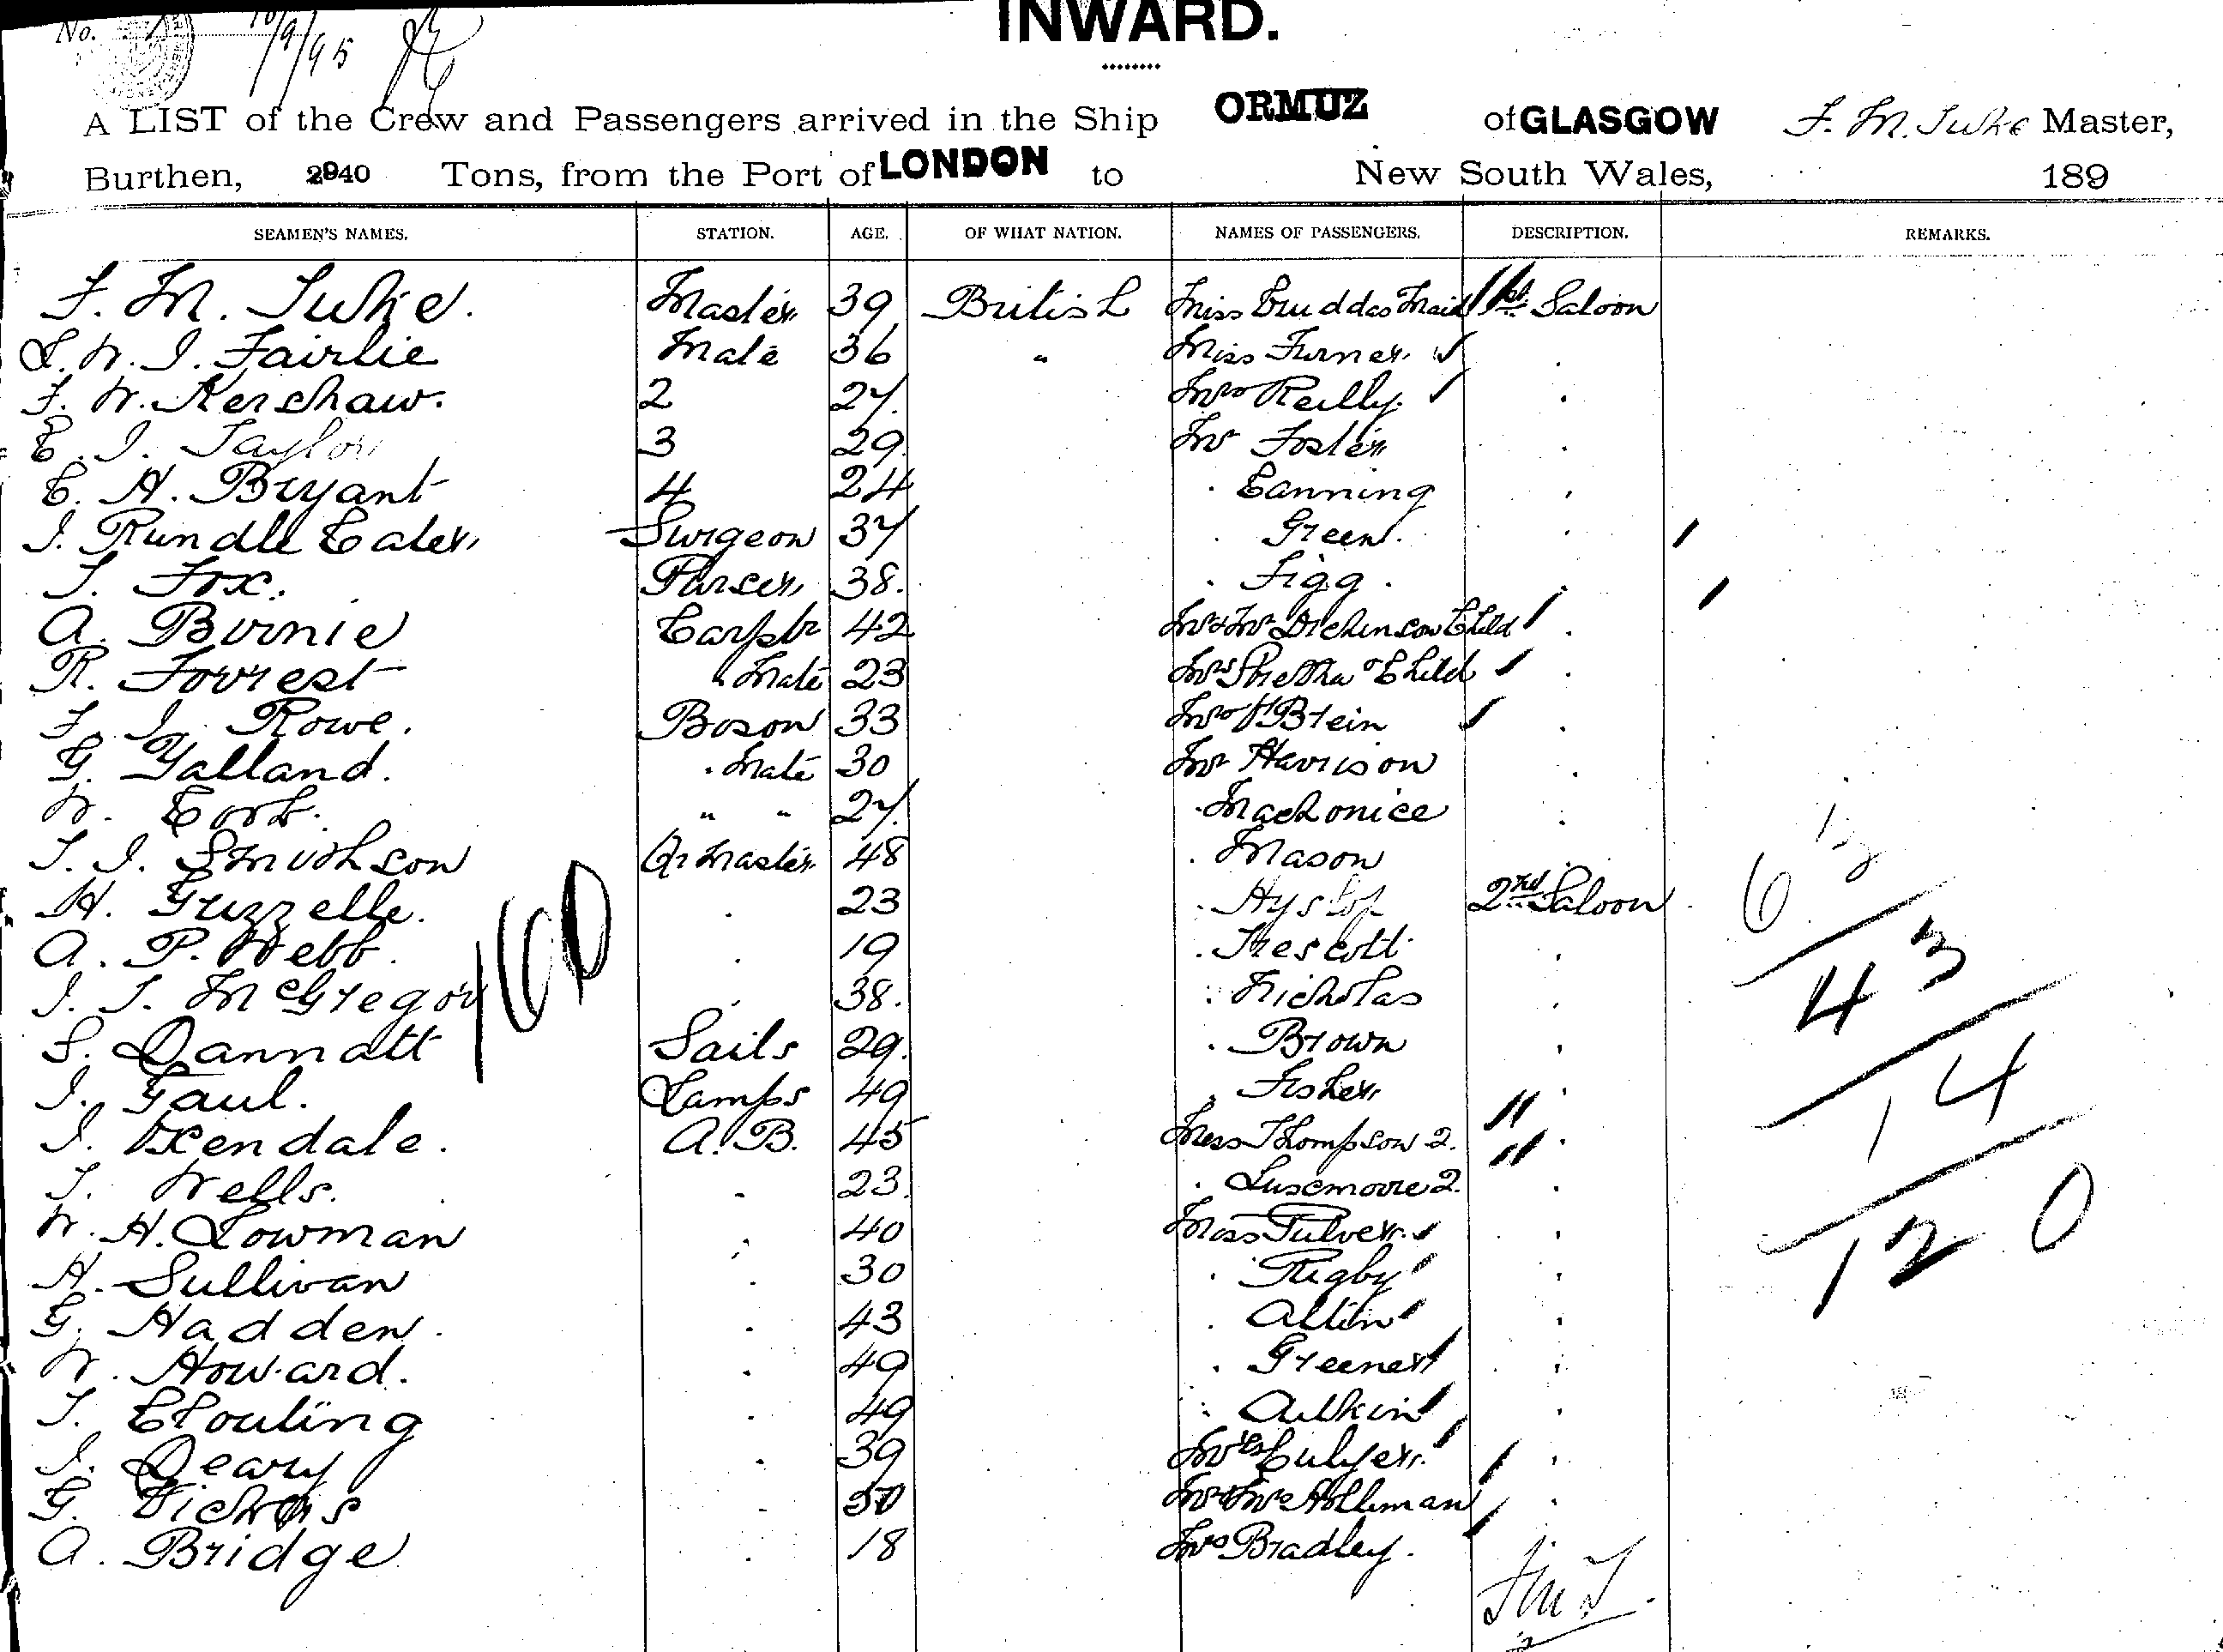 No. 10/9/95
INWARD.
A LIST of the Crew and Passengers arrived in the Ship ORMUZ of GLASGOW F. M. Tuke Master,
Burthen, 2940 Tons, from the Port of LONDON to New South Wales, 189
SEAMEN'S NAMES. STATION. AGE. OF WHAT NATION. NAMES OF PASSENGERS. DESCRIPTION. REMARKS.
F. M. Tuke. Master 39 British Miss Cruddas Maid 1st Saloon
L. W. J. Fairlie Mate 36 " Miss Turner
F. W. Kershaw. 2 27. Mrs Reilly.
C. J. Taylor 3 29. Mr Foster
C. H. Bryant 4 24 Canning
J. Rundle Cater Surgeon 37 Green.
T. Fox. Purser 38. Figg.
A. Birnie Carptr 42 Mr & Mrs Dickinson Child
R. Forrest " Mate 23 Mrs Child
F. J. Rowe. Boson 33 Mrs Stein
G. Yalland. Mate 30 Mr Harrison
W. Cork. " " 27. Machonice
T. J. Smithson Qr Master 48 Mason
H. Guzzelle. 23 Hyslop 2nd Saloon
A. P. Webb. 19 Trescott
J. T. McGregor 38. Nicholas
S. Dannatt Sails 29. Brown
J. Gaul. Lamps 49 Fisher
J. Kendale. A.B. 45 Misses Thompson 2.
T. Wells. 23. Luxmoore 2.
W. H. Lowman 40 Miss Pulver
H. Sullivan 30 Rigby
G. Hadden. 43 Allen
W. Howard. 49 Greener
T. Clouting 49 Aitkin
J. Deary 39 Culyer
G. Vickers 30 Mr & Mrs Holliman
A. Bridge 18 Mrs Bradley.
100
6
43
14
120